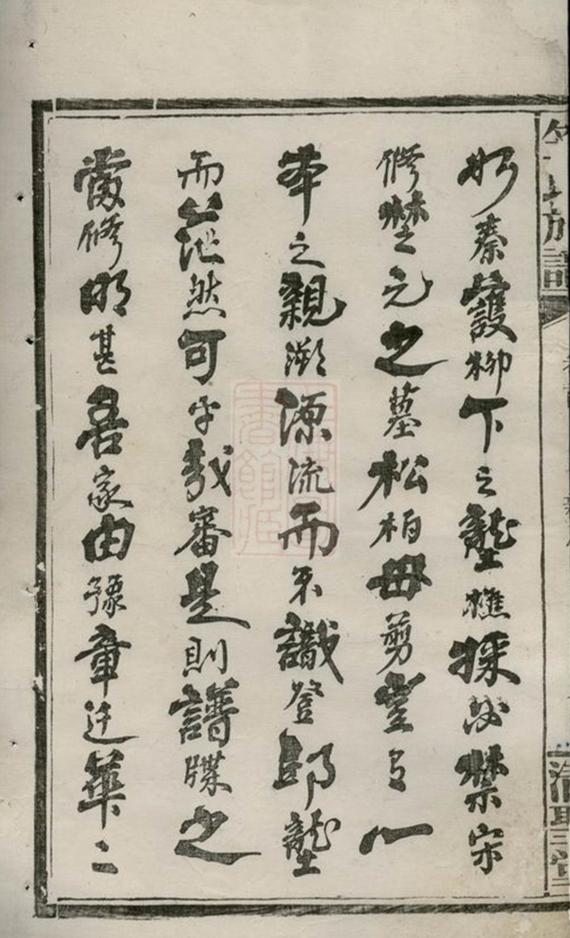 如秦護柳下之壟樵採必禁宋
修楚元之墓松柏毋剪豈有一
本之親溯源流而不識登邱壟
而茫然可乎哉審是則譜牒之
當修明甚吾家由豫章迁華二